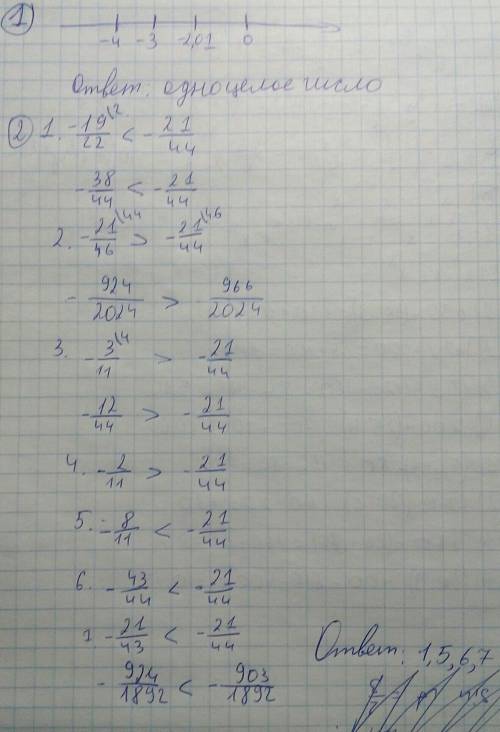 1
-4 -3 -2,01 0
Ответ: одно целое число
2 1. -19\2/22 < -21/44
-38/44 < -21/44
2. -21\44/46 > -21\46/44
-924/2024 > -966/2024
3. -3\4/11 > -21/44
-12/44 > -21/44
4. -2/11 > -21/44
5. -8/11 < -21/44
6. -43/44 < -21/44
7. -21/43 < -21/44
-924/1892 < -903/1892
Ответ: 1,5,6,7